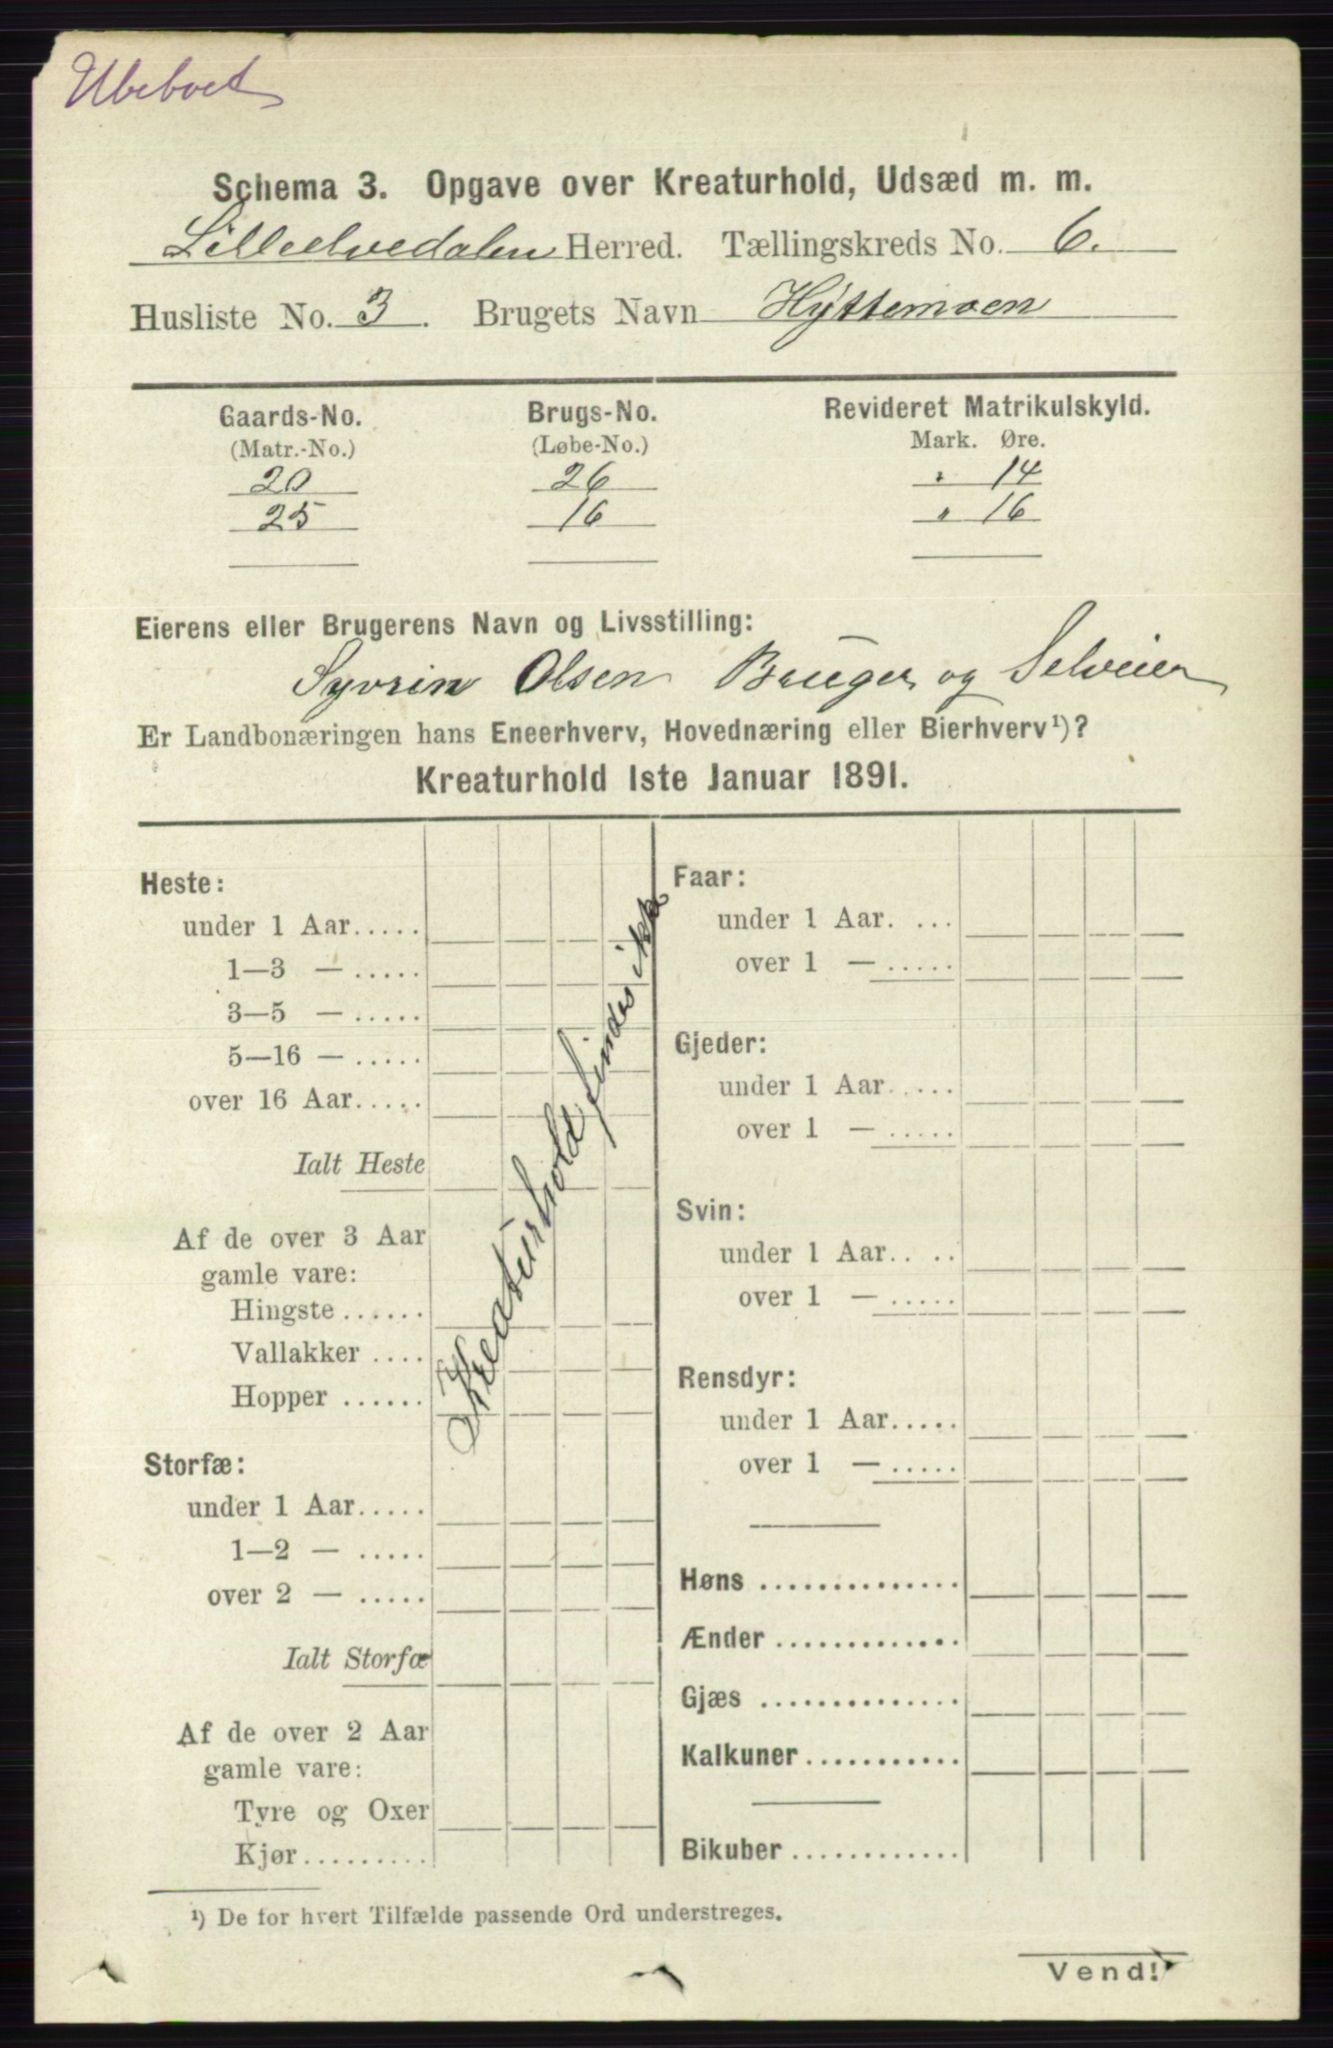 Ubeboet
Schema 3. Opgave over Kreaturhold, Udsæd m. m.
Lilleelvedalen Herred. Tællingskreds No. 6.
Husliste No. 3. Brugets Navn Hyttemoen
Gaards-No. Brugs-No. Revideret Matrikulskyld.
(Matr.-No.) (Løbe-No.) Mark. Øre.
20 26 " 14
25 16 " 16
Eierens eller Brugerens Navn og Livsstilling:
Syvrin Olsen Bruger og Selveier
Er Landbonæringen hans Eneerhverv, Hovednæring eller Bierhverv¹)?
Kreaturhold 1ste Januar 1891.
Heste:
under 1 Aar.....
1—3 — .....
3—5 — .....
5—16 — .....
over 16 Aar.....
Ialt Heste
Af de over 3 Aar
gamle vare:
Hingste ......
Vallakker ....
Hopper ......
Storfæ:
under 1 Aar.....
1—2 — .....
over 2 — .....
Ialt Storfæ
Af de over 2 Aar
gamle vare:
Tyre og Oxer
Kjør.........
Kreaturhold findes ikke
Faar:
under 1 Aar. ...
over 1 — .....
Gjeder:
under 1 Aar.....
over 1 — .....
Svin:
under 1 Aar.. ..
over 1 — .....
Rensdyr:
under 1 Aar.....
over 1 — .....
Høns ..............
Ænder .............
Gjæs ..............
Kalkuner ...........
Bikuber ............
¹) De for hvert Tilfælde passende Ord understreges.
Vend!